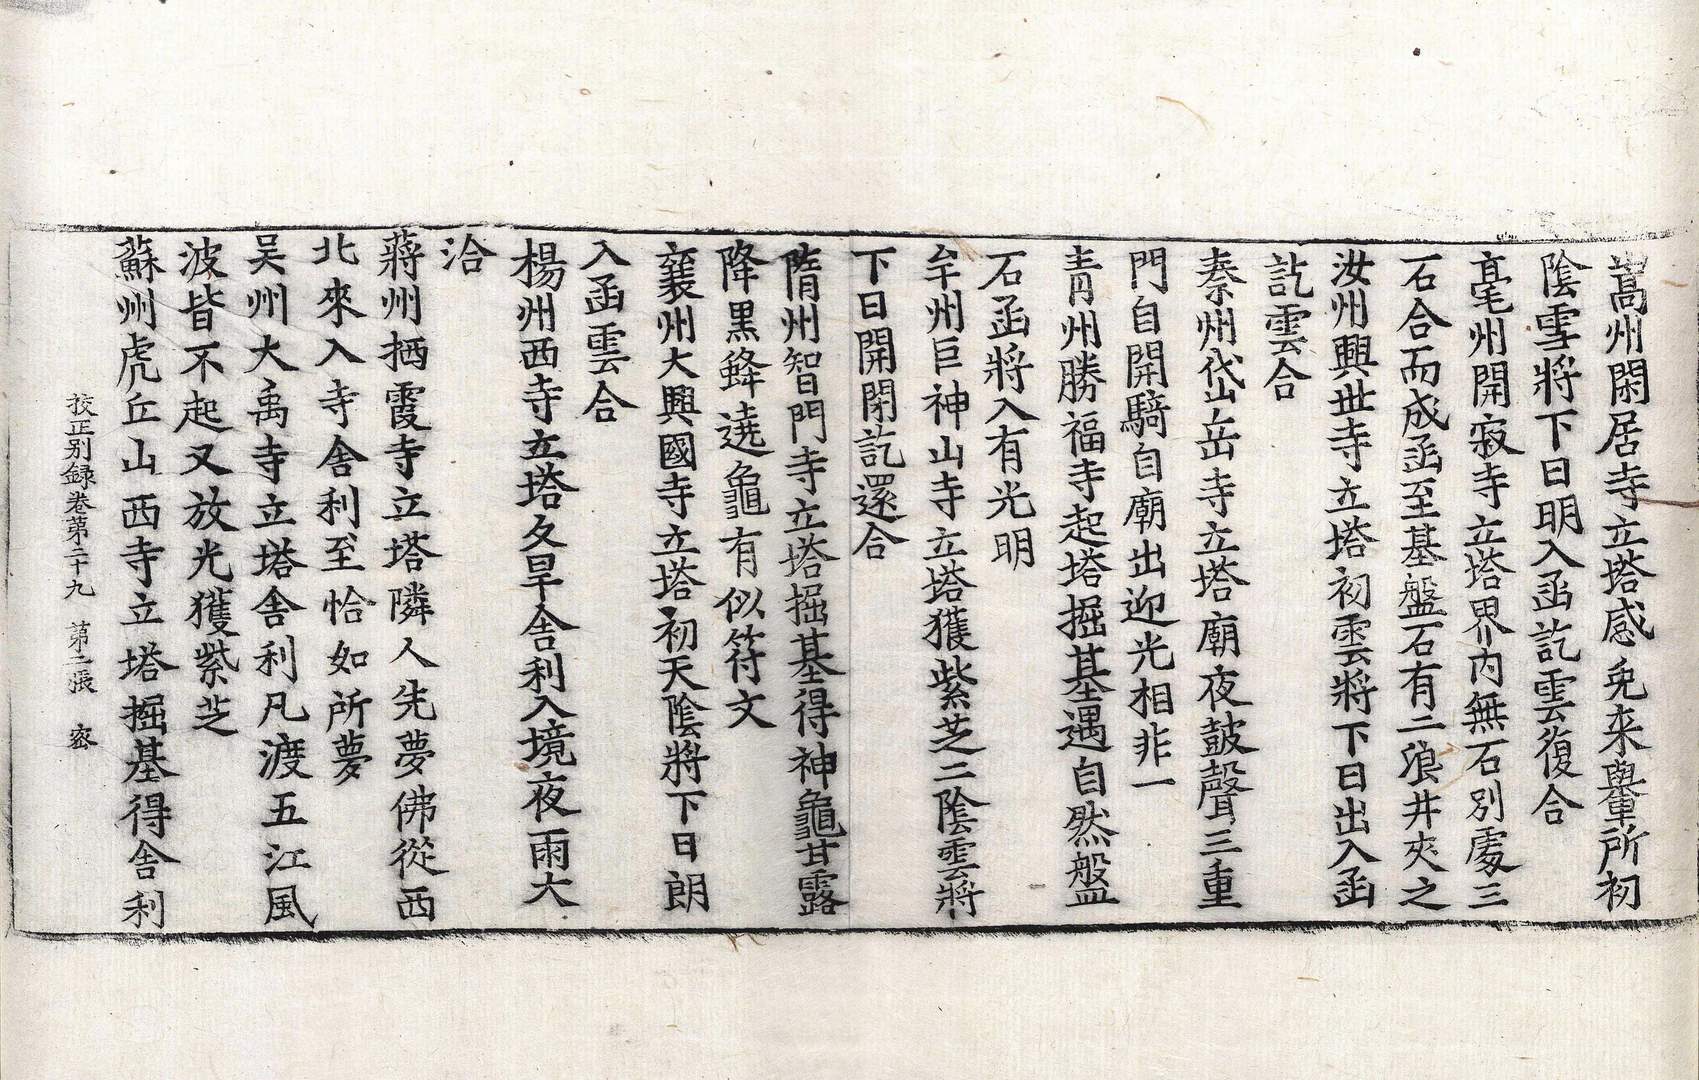 嵩州閑居寺立塔感兎来輿輦所初
陰雪將下日明入函訖雲復合
亳州開寂寺立塔界内無石別處三
石合而成函至基盤石有二浪井夾之
汝州興世寺立塔初雲將下日出入函
訖雲合
秦州岱岳寺立塔廟夜鼓聲三重
門自開騎自廟出迎光相非一
青州勝福寺起塔掘基遇自然盤
石函將入有光明
牟州巨神山寺立塔獲紫芝二陰雲將
下日開閉訖還合
隋州智門寺立塔掘基得神龜甘露
降黒蜂遶龜有似符文
襄州大興國寺立塔初天陰將下日朗
入函雲合
楊州西寺立塔久旱舍利入境夜雨大
洽
蔣州栖霞寺立塔隣人先夢佛從西
北來入寺舍利至恰如所夢
吴州大禹寺立塔舍利凡渡五江風
波皆不起又放光獲紫芝
蘇州虎丘山西寺立塔掘基得舍利
挍正别録卷第二十九 第二張 密